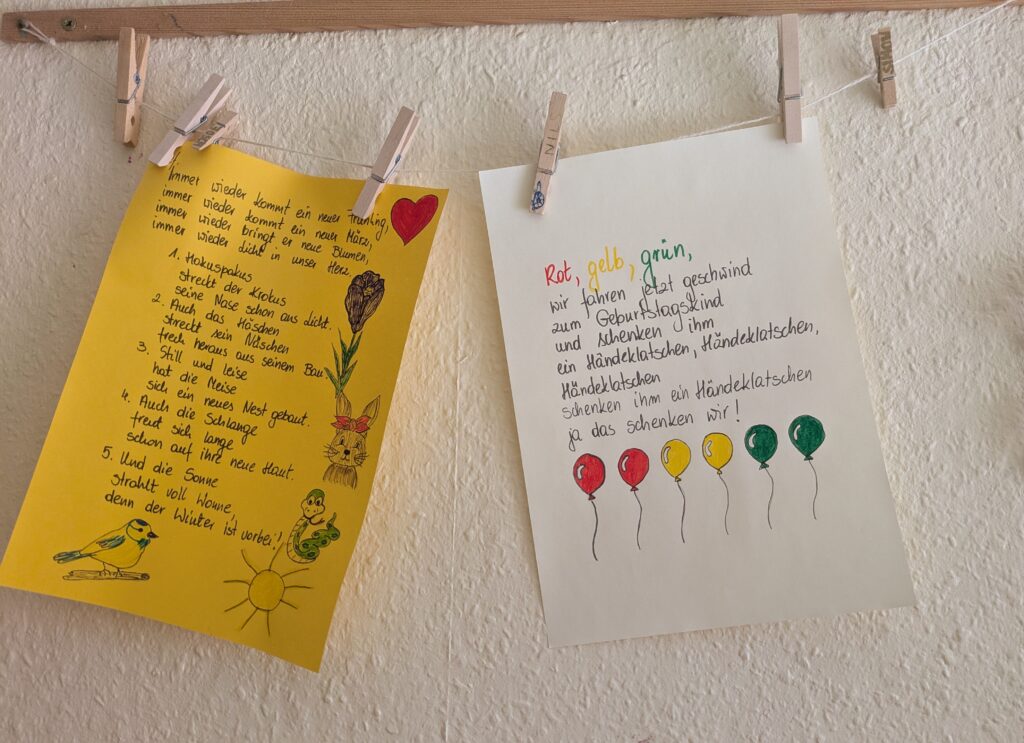 Immer wieder kommt ein neuer Frühling,
immer wieder kommt ein neuer März,
immer wieder bringt er neue Blumen,
immer wieder Licht in unser Herz.
1. Hokuspokus
streckt der Krokus
seine Nase schon ans Licht.
2. Auch das Häschen
streckt sein Näschen
frech heraus aus seinem Bau.
3. Still und leise
hat die Meise
sich ein neues Nest gebaut.
4. Auch die Schlange
freut sich lange
schon auf ihre neue Haut.
5. Und die Sonne
strahlt voll Wonne,
denn der Winter ist vorbei!
NILS
Rot, gelb, grün,
wir fahren jetzt geschwind
zum Geburtstagskind
und schenken ihm
ein Händeklatschen, Händeklatschen,
Händeklatschen
schenken ihm ein Händeklatschen
ja das schenken wir!